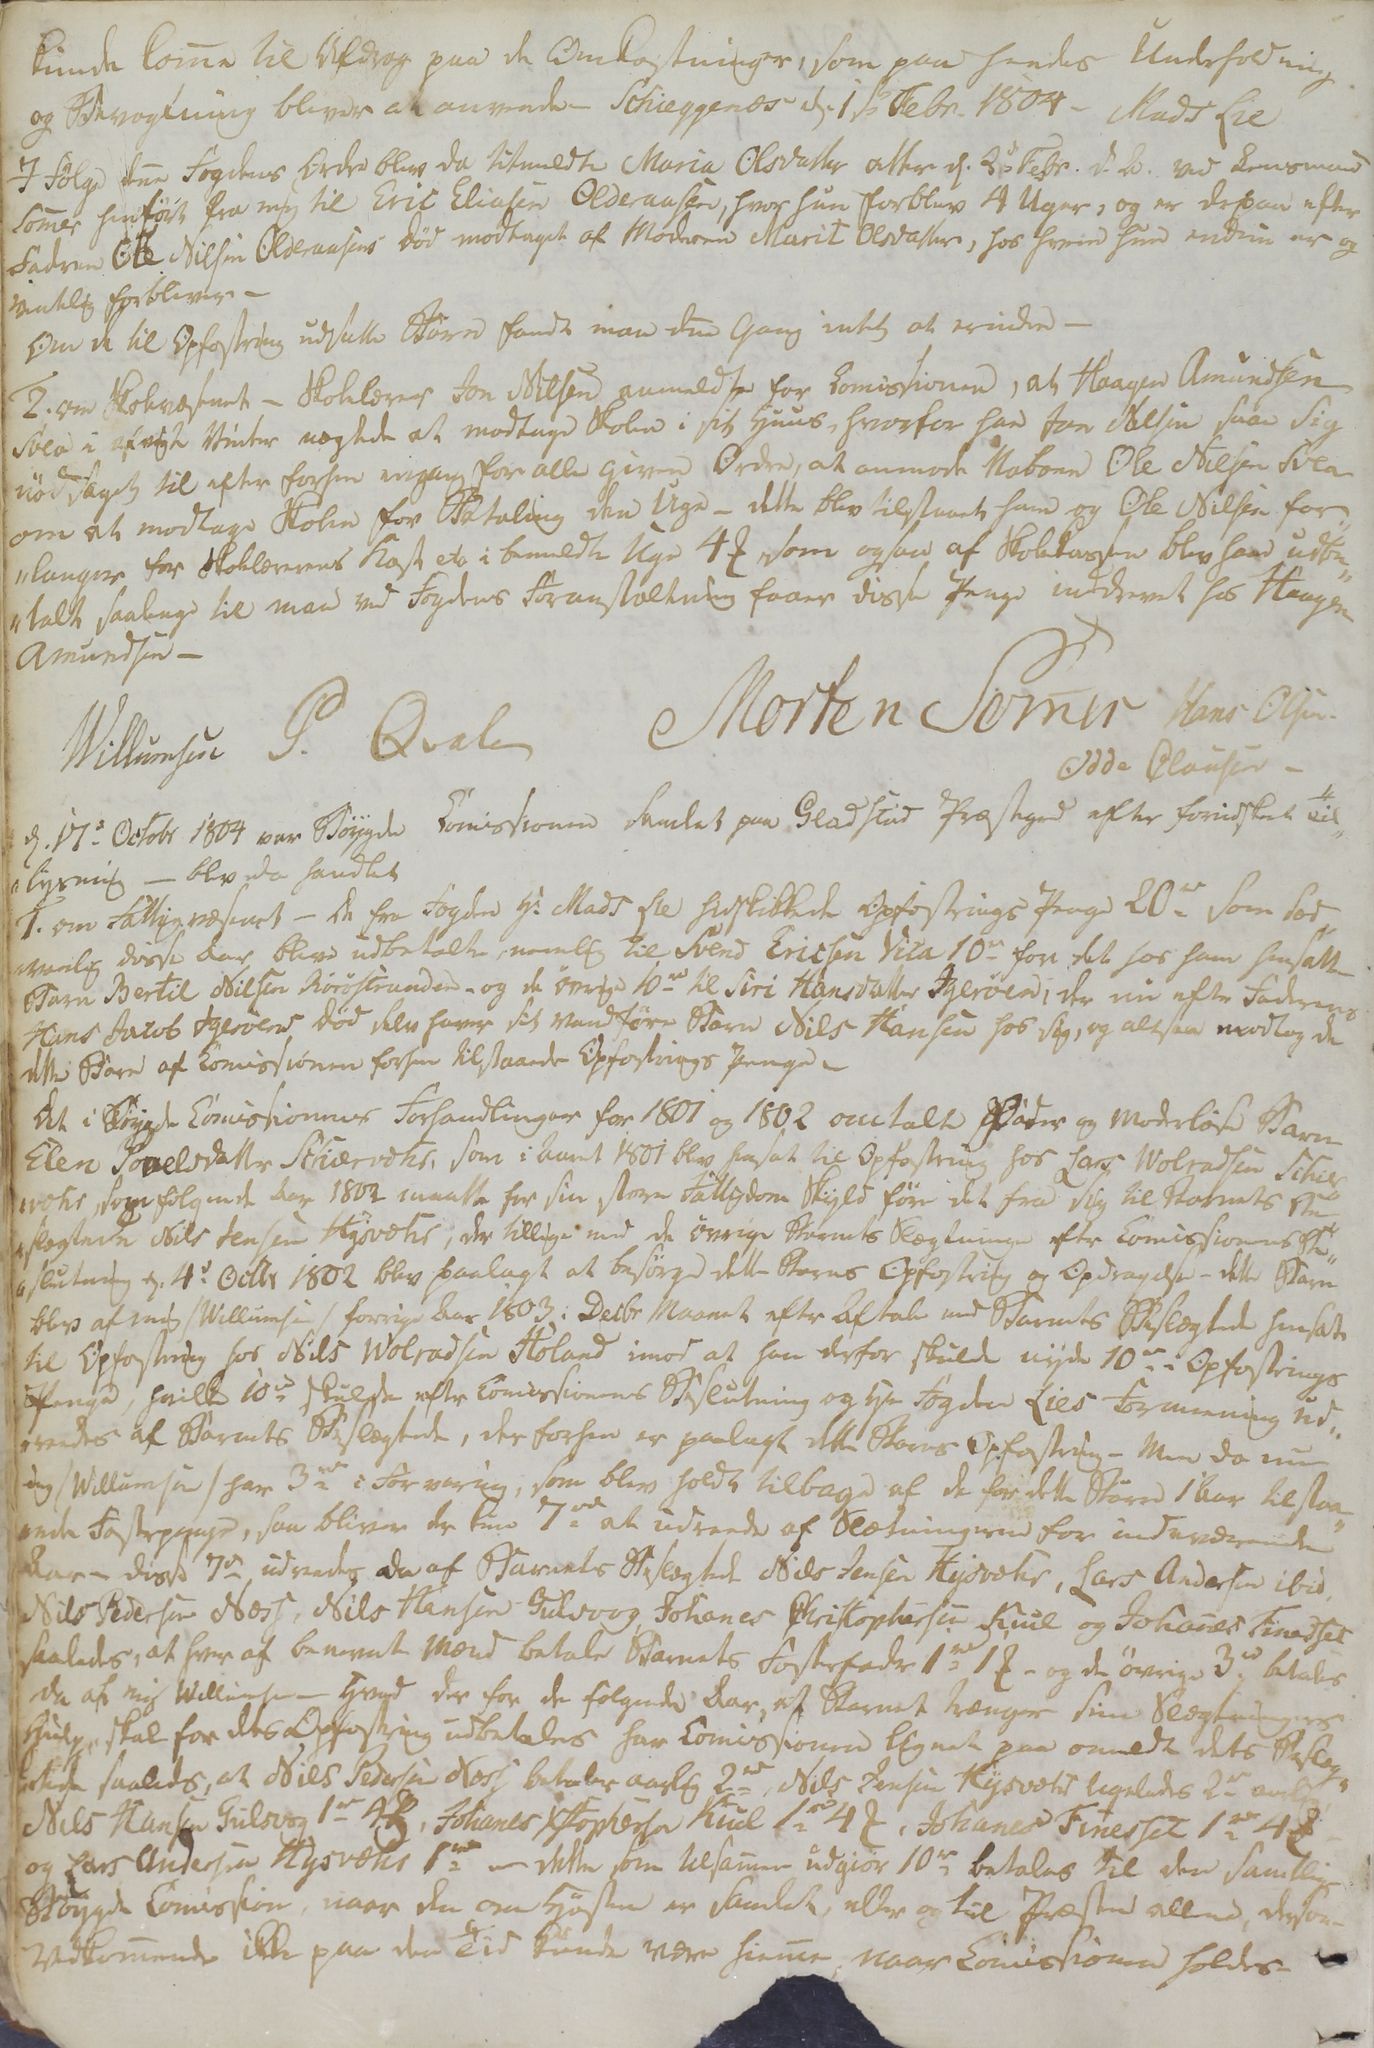 kunde komme til Afdrag paa de Omkostninger, som paa hendes Underholdning
og Bevogtning bliver at anvende – Schieggenæs d. 1ste Febr. 1804 – Mads Lie
I Følge denne Fogdens Ordre blev da bemeldte Maria Olsdatter atter d. Febr. d. A. ved Lensmand
Somer henført fra mig til Eric Eliasen Olderaasen, hvor hun forblev 4 Uger, og er derpaa efter
Fadren Ole Nilsen Olderaasens Død modtaget af Moderen Marit Olsdatter, hos hvem hun endnu er og
ventelig forbliver –
Om de til Opfostring udsatte Børn fandt man denne Gang intet at erindre –
2. om Skolevæsenet – Skolelærer Jon Nilsen anmeldte for Comissionen, at Haagen Amundsen
Svea i afvigte Vinter nægtede at modtage Skolen i sit Huus, hvorfor han Jon Nilsen saae sig
nødsaget til efter forhen engang for alle given Ordre, at anmode Naboen Ole Nilsen Svea
om at modtage Skolen for Betaling den Uge – dette blev tilstaaet ham og Ole Nilsen for„
„langer for Skolelærerens Kost etc i bemeldte Uge 4 ƶ, som ogsaa af Skolekassen blev ham udbe„
„talt saalænge til man ved Fogdens Foranstaltning faaer disse Penge inddrevet hos Haagen
Amundsen –
Willumsen P. Qvale Morten Somer Hans Olsen
Odde Clausen –
d. 17de Octobr 1804 var Bøygde Comissionen samlet paa Gladstad Præstegd efter foregaaet Til„
„lysning – blev da handlet
1. om Fattigvæsenet – De fra Fogden Hr Mads Lie hidskikkede Opfostrings Penge 20 rd som sæd„
„vanlig disse Aar bleve udbetalte, nemlig til Svend Ericsen Vita 10 rd for det hos ham hensatte
Barn Bertil Nilsen Rørøstranden – og de øvrige 10 rd til Siri Hansdatter Igerøen, der nu efter Faderens
Hans Jacob Igerøens Død selv haver sit vanføre Barn Nils Hansen hos sig, og altsaa modtog de
dette Barn af Comissionen forhen tilstaaede Opfostrings Penge –
Det i Bøygde Comissionens Forhandlinger for 1801 og 1802 omtalte Fader og Moderløse Barn
Elen Povelsdatter Schiervøhs, som i Aaret 1801 blev hensat til Opfostring hos Lars Wolradsen Schier
vøhs, som følgende Aar 1802 maatte for sin store Fattigdom Skyld føre det fra sig til Barnets Be„
„slægtede Nils Jensen Hysvøhs, der tillige med de øvrige Barnets Slægtninge efter Comissionens Be„
„slutning d. 4de Octbr 1802 blev paalagt at besørge dette Barns Opfostring og Opdragelse – dette Barn
blev af mig /Willumsen/ forrige Aar 1803 i Decbr Maaned efter Aftale med Barnets Beslægtede hensat
til Opfostring hos Nils Wolradsen Høland imod at han derfor skulde nyde 10 rd Opfostrings
Penge, hvilke 10 rd skulde efter Comissionens Beslutning og Hr Fogden Lies Formening ud„
„redes af Barnets Beslægtede, der forhen er paalagt dette Barns Opfostring – Men da nu
jeg /Willumsen/ har 3 rd i Forvaring, som blev holdt tilbage af de for dette Barn 1 Aar tilstaa„
„ede Fosterpenge, saa bliver der kun 7 rd at udreede af Slætningerne for indeværende
Aar – disse 7 rd udreedes da af Barnets Beslægtede Nils Jensen Hysvøhs, Lars Andersen ibid.
Nils Pedersen Næss, Nils Hansen Gulsvog, Johanes Christophersen Kuul og Johanes Finesset
saaledes, at hver af benevnte Mænd betale Barnets Fosterfader 1 rd 1 ƶ – og de øvrige 3 rd betales
da af mig Willumsen – Hvad der for de følgende Aar, at Barnet trænger sine Slægtninges
Hielp, skal for dets Opfostring udbetales har Comissionen lignet paa omeldt dets Beslæg„
„tede saaledes, at Nils Pedersen Næss betaler aarlig 2 rd, Nils Jensen Hysvøhs ligeledes 2 rd aarlig,
Nils Hansen Gulsvog 1 rd 4 ƶ, Johanes Xstophersen Kuul 1 rd 4 ƶ, Johanes Finesset 1 rd 4 ƶ
og Lars Andersen Hysvøhs 1 rd – dette som tilsamen udgiør 10 rd betales til den samtlige
Bøygde Comission, naar den om Høsten er samlet, eller og til Præsten allene, dersom
Vedkommende ikke paa den Tid kunde være hieme, naar Comissionen holdes –